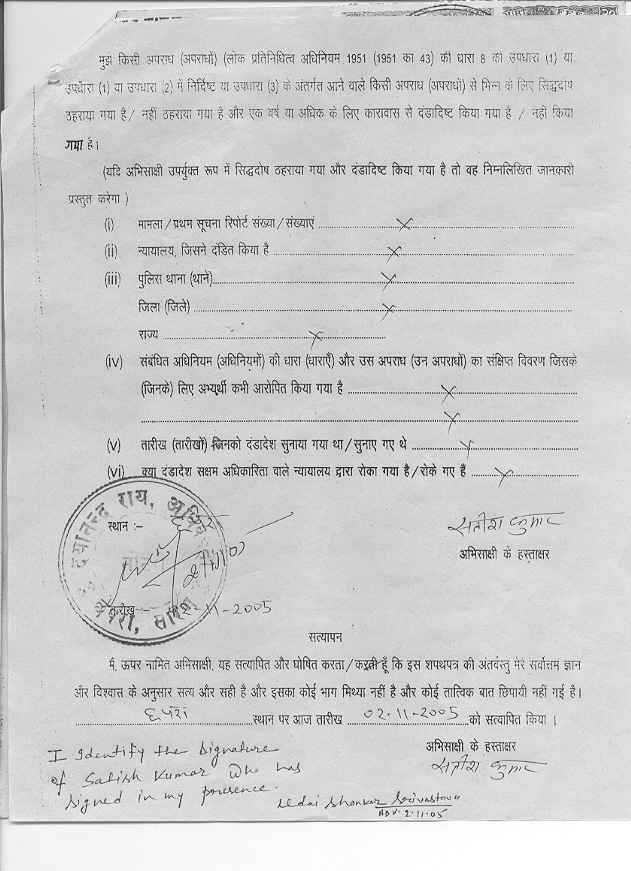 मुझे किसी अपराध (अपराधों) (लोक प्रतिनिधित्व अधिनियम 1951 (1951 का 43) की धारा 8 की उपधारा (1) या
उपधारा (1) या उपधारा (2) में निर्दिष्ट या उपधारा (3) के अंतर्गत आने वाले किसी अपराध (अपराधों) से भिन्न के लिए सिद्धदोष
ठहराया गया है / नहीं ठहराया गया है और एक वर्ष या अधिक के लिए कारावास से दंडादिष्ट किया गया है / नहीं किया
गया है।
(यदि अभिसाक्षी उपर्युक्त रूप में सिद्धदोष ठहराया गया और दंडादिष्ट किया गया है तो वह निम्नलिखित जानकारी
प्रस्तुत करेगा )
(i) मामला / प्रथम सूचना रिपोर्ट संख्या / संख्याएं ........ X ........
(ii) न्यायालय, जिसने दंडित किया है ........ X ........
(iii) पुलिस थाना (थाने)........ X ........
जिला (जिले) ........ X ........
राज्य ........ X ........
(iv) संबंधित अधिनियम (अधिनियमों) की धारा (धाराएँ) और उस अपराध (उन अपराधों) का संक्षिप्त विवरण जिसके
(जिनके) लिए अभ्यर्थी कभी आरोपित किया गया है ........ X ........
........ X ........
(v) तारीख (तारीखों) जिनको दंडादेश सुनाया गया था / सुनाए गए थे ........ X ........
(vi) क्या दंडादेश सक्षम अधिकारिता वाले न्यायालय द्वारा रोका गया है / रोके गए हैं ........ X ........
दयानन्द राय,
छपरा, सारण
स्थान :-
सतीश कुमार
अभिसाक्षी के हस्ताक्षर
तारीख:- 2-11-2005
सत्यापन
मैं, ऊपर नामित अभिसाक्षी, यह सत्यापित और घोषित करता / करती हूँ कि इस शपथपत्र की अंतर्वस्तु मेरे सर्वोत्तम ज्ञान
और विश्वास के अनुसार सत्य और सही है और इसका कोई भाग मिथ्या नहीं है और कोई तात्विक बात छिपायी नहीं गई है।
छपरा स्थान पर आज तारीख 02-11-2005 को सत्यापित किया ।
अभिसाक्षी के हस्ताक्षर
सतीश कुमार
I Identify the Signature
of Satish Kumar Who has
Signed in my presence.
Udai Shankar Srivastava
ADV. 2.11.05